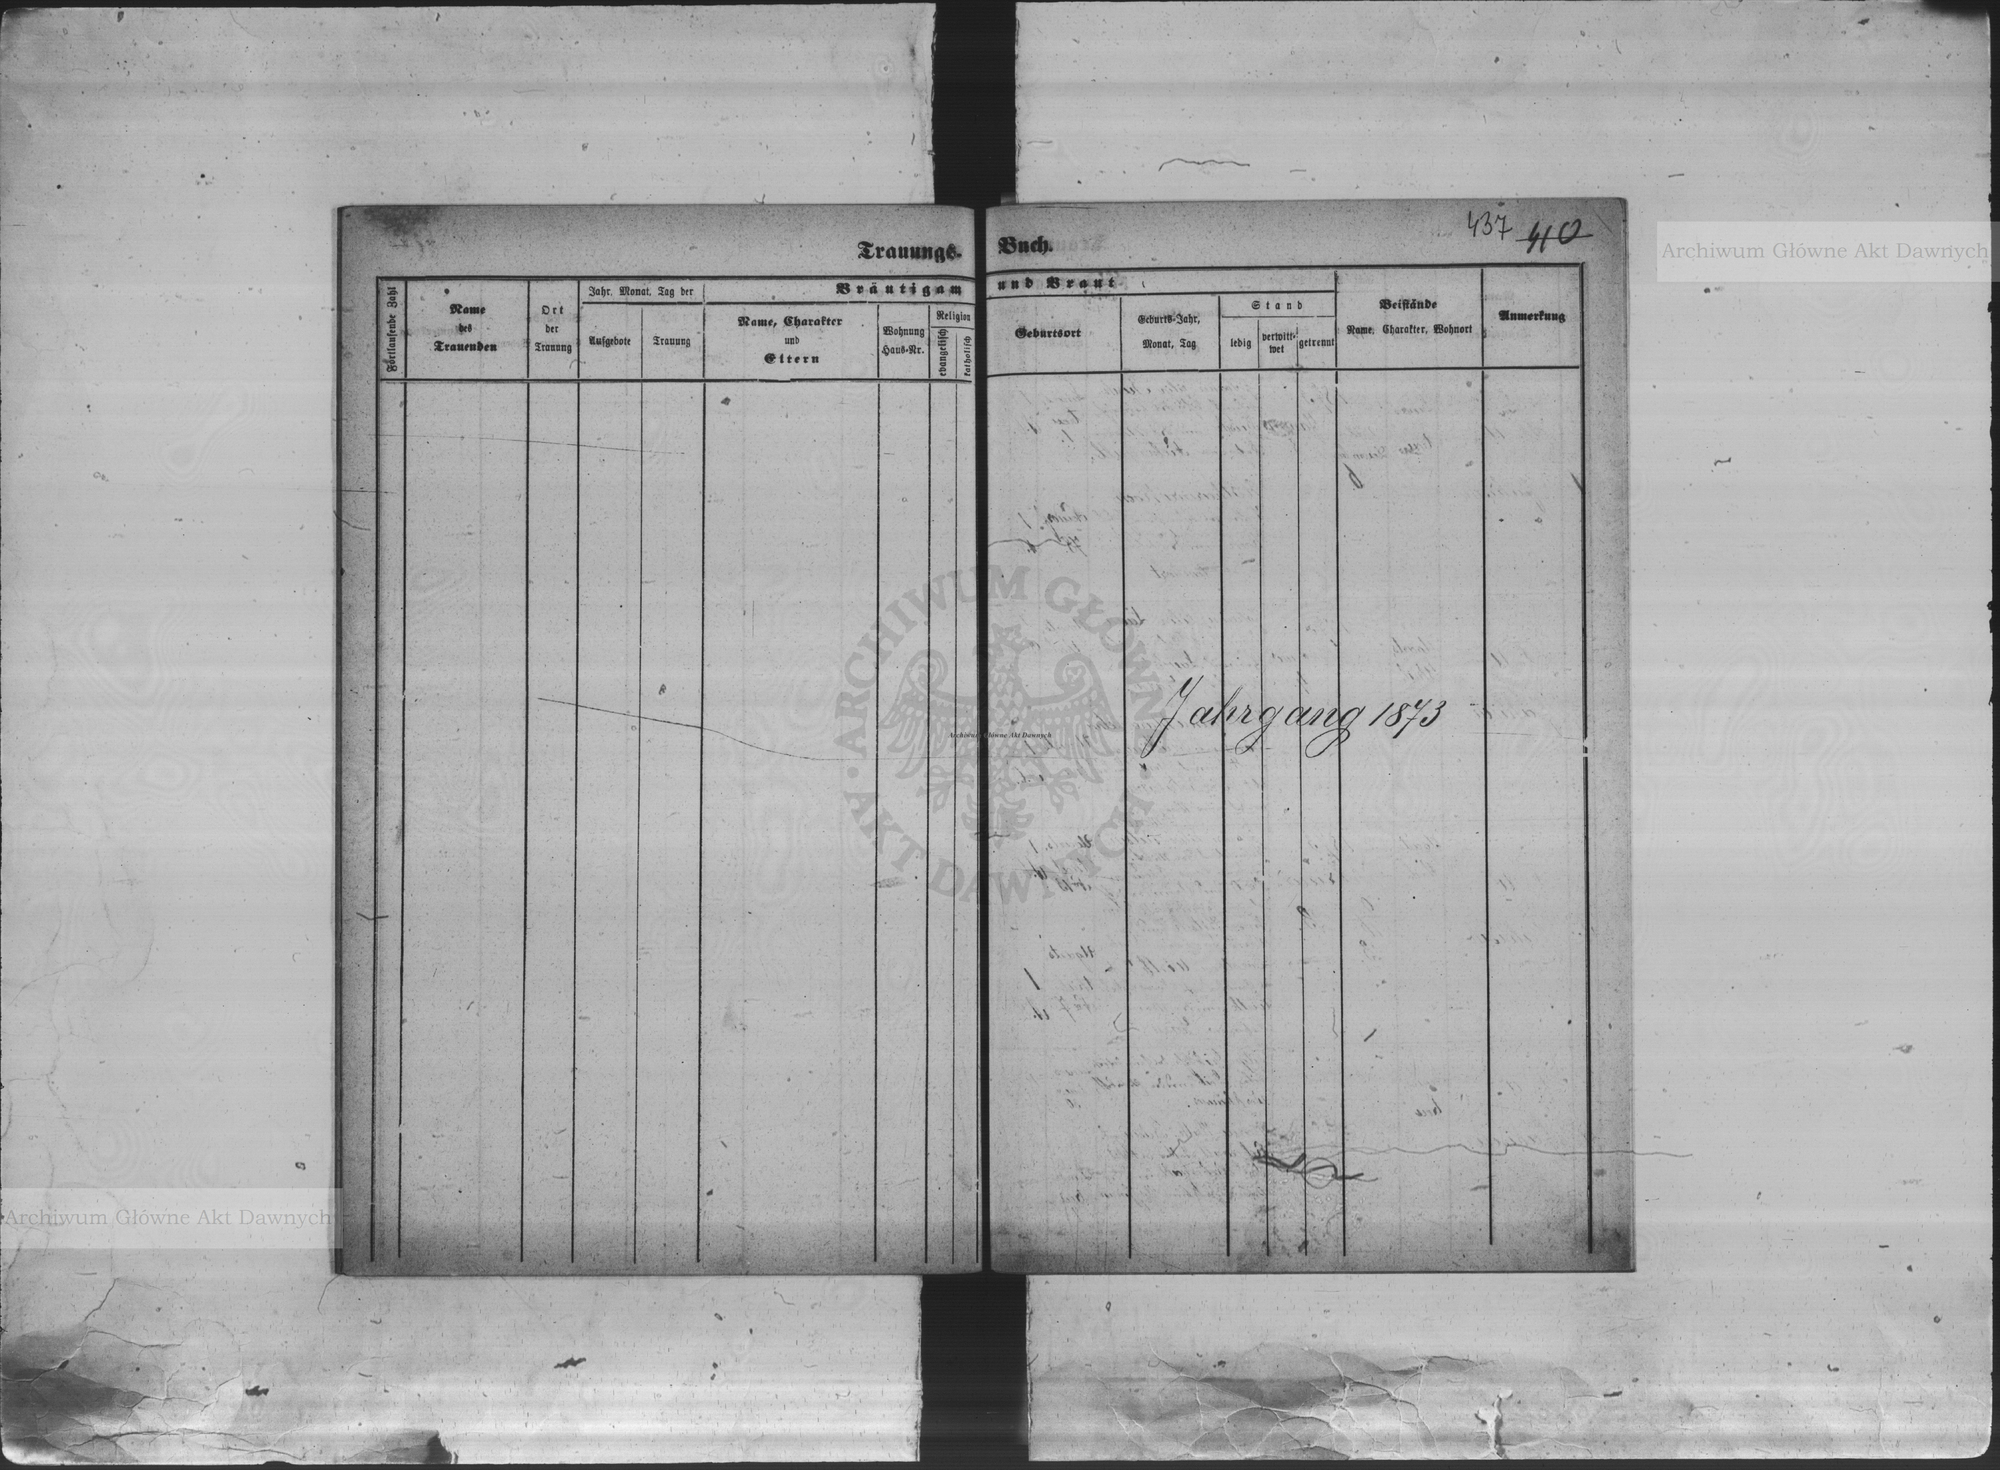 437 410
Trauungs-Buch.
Fortlaufende Zahl
Name
des
Trauenden
Ort
der
Trauung
Jahr, Monat, Tag der
Aufgebote
Trauung
Bräutigam und Braut
Name, Charakter
und
Eltern
Wohnung
Haus-Nr.
Religion
evangelisch
katholisch
Geburtsort
Geburts-Jahr,
Monat, Tag
Stand
ledig
verwitt-
wet
getrennt
Beistände
Name, Charakter, Wohnort
Anmerkung
Jahrgang 1873
Archiwum Główne Akt Dawnych
Archiwum Główne Akt Dawnych
Archiwum Główne Akt Dawnych
ARCHIWUM GŁÓWNE
AKT DAWNYCH